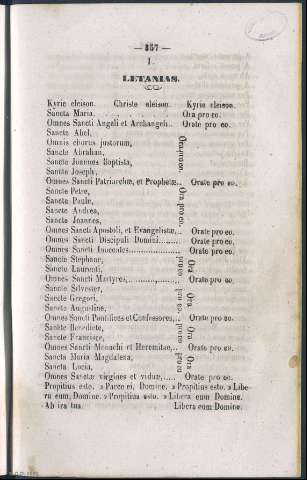 — 357 —
I
LETANIAS.
Kyrie eleison. Christe eleison. Kyrie eleison.
Sancta Maria. Ora pro eo.
Omnes Sancti Angeli et Archangeli.. Orate pro eo.
Sancte Abel,
Omnis chorus justorum,
Sancte Abraham,
Sancte Joannes Baptista,
Sancte Joseph,
Ora pro eo.
Omnes Sancti Patriarchæ, et Prophetæ.. Orate pro eo.
Sancte Petre,
Sancte Paule,
Sancte Andrea,
Sancte Joannes,
Ora pro eo.
Omnes Sancti Apostoli, et Evangelistæ.. Orate pro eo.
Omnes Sancti Discipuli Domini....... Orate pro eo.
Omnes Sancti Innocentes.............. Orate pro eo.
Sancte Stephane,
Sancte Laurenti,
Ora pro eo.
Omnes Sancti Martyres.............. Orate pro eo.
Sancte Silvester,
Sancte Gregori,
Sancte Augustine,
Ora pro eo.
Omnes Sancti Pontifices et Confessores... Orate pro eo.
Sancte Benedicte,
Sancte Francisce,
Ora pro eo.
Omnes Sancti Monachi et Heremitæ... Orate pro eo.
Sancta Maria Magdalena,
Sancta Lucia,
Ora pro eo
Omnes Sanctæ virgines et viduæ,.... Orate pro eo.
Propitius esto. » Parce ei, Domine. » Propitius esto. » Libe-
ra eum, Domine. » Propitius esto. » Libera eum Domine.
Ab ira tua. Libera eum Domine.